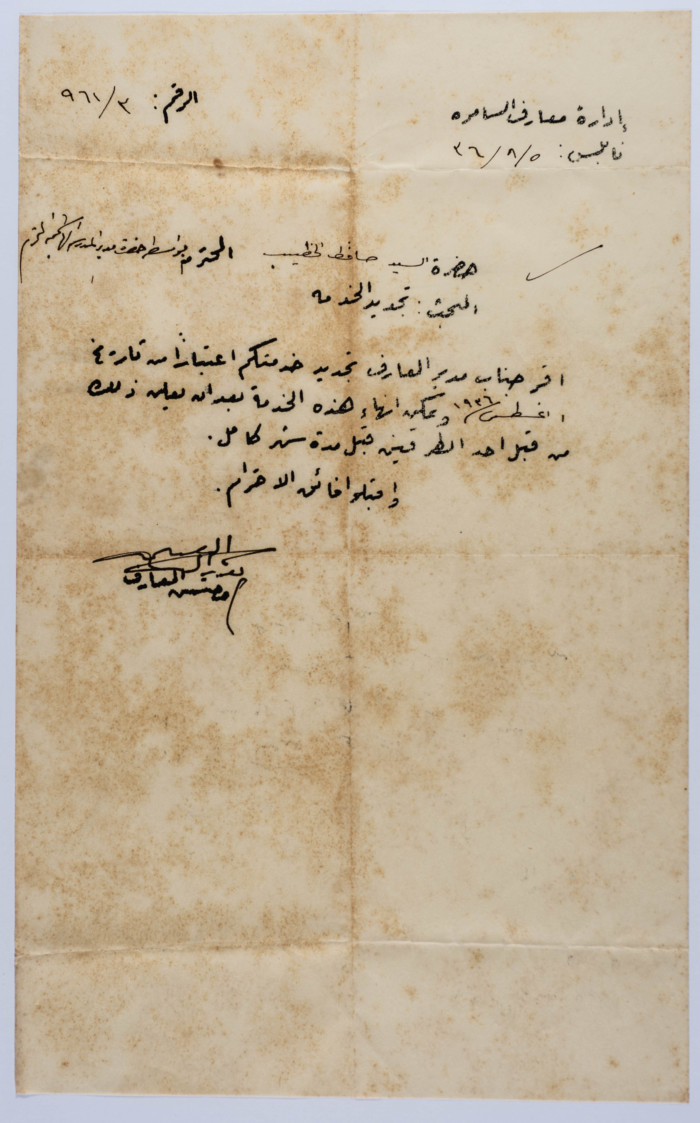 إدارة معارف السامره
الرقم: ٩٦١/٣
نابلس: ٣٦/٨/٥
حضرة السيد حافظ الخطيب المحترم بواسطة حضرة مدير المدرسة الهاشمية المحترم
المبحث: تجديد الخدمه
اقر جناب مدير المعارف تجديد خدمتكم اعتبارًا من تاريخ
اغسطس ١٩٣٦ ويمكن انهاء هذه الخدمة بعد ان يعلن ذلك
من قبل احد الطرفين قبل مدة شهر كامل.
واقبلوا فائق الاحترام.
مفتش المعارف